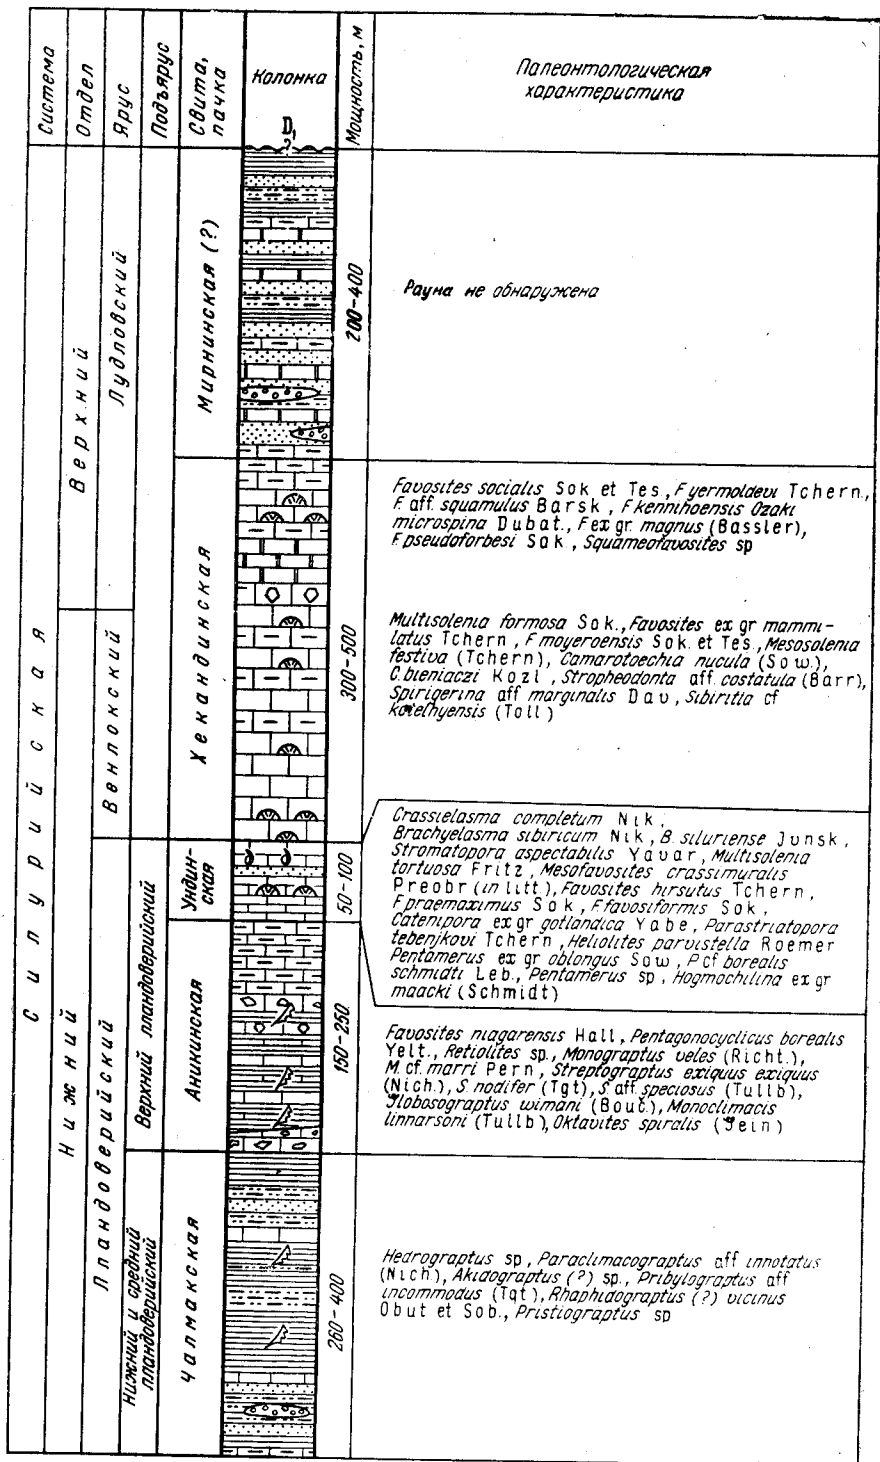 Система
Отдел
Ярус
Подъярус
Свита,
пачка
Колонка
D₁
?
Мощность, м
Палеонтологическая
характеристика
Силурийская
Верхний
Нижний
Лудловский
Венлокский
Лландоверийский
Верхний лландоверийский
Нижний и средний
лландоверийский
Мирнинская (?)
200-400
Фауна не обнаружена
Хекандинская
300-500
Favosites socialis Sok et Tes, F yermolaevi Tchern,
F. aff. squamulus Barsk, F kennihoensis Ozaki
microspina Dubat., F ex gr. magnus (Bassler),
F. pseudoforbesi Sok, Squameofavosites sp
Multisolenia formosa Sok., Favosites ex gr mammi-
latus Tchern, F moyeroensis Sok. et Tes, Mesosolenia
festiva (Tchern), Camarotoechia nucula (Sow.),
C. bieniaczi Kozl, Stropheodonta aff. costatula (Barr),
Spirigerina aff marginalis Dav, Sibiritia cf
kotelnyensis (Toll)
Ундин-
ская
50-100
Crassielasma completum Nik,
Brachyelasma sibiricum Nik, B. siluriense Junsk,
Stromatopora aspectabilis Yavor, Multisolenia
tortuosa Fritz, Mesofavosites crassimuralis
Preobr (in litt), Favosites hirsutus Tchern,
F praemaximus Sok, F. favosiformis Sok,
Catenipora ex gr gotlandica Yabe, Parastriatopora
tebenjkovi Tchern, Heliolites parvistella Roemer
Pentamerus ex gr oblongus Sow, P cf borealis
schmidti Leb., Pentamerus sp, Hogmochilina ex gr
maacki (Schmidt)
Аникинская
150-250
Favosites niagarensis Hall, Pentagonocyclicus borealis
Yelt., Retiolites sp., Monograptus veles (Richt.),
M. cf. marri Pern, Streptograptus exiguus exiguus
(Nich.), S. nodifer (Tqt), S aff speciosus (Tullb),
Globosograptus wimani (Bouč.), Monoclimacis
linnarsoni (Tullb), Oktavites spiralis (Gein)
Чалмакская
260-400
Hedrograptus sp, Paraclimacograptus aff innotatus
(Nich.), Akidograptus (?) sp., Pribylograptus aff
incommodus (Tqt), Rhaphidograptus (?) vicinus
Obut et Sob., Pristiograptus sp